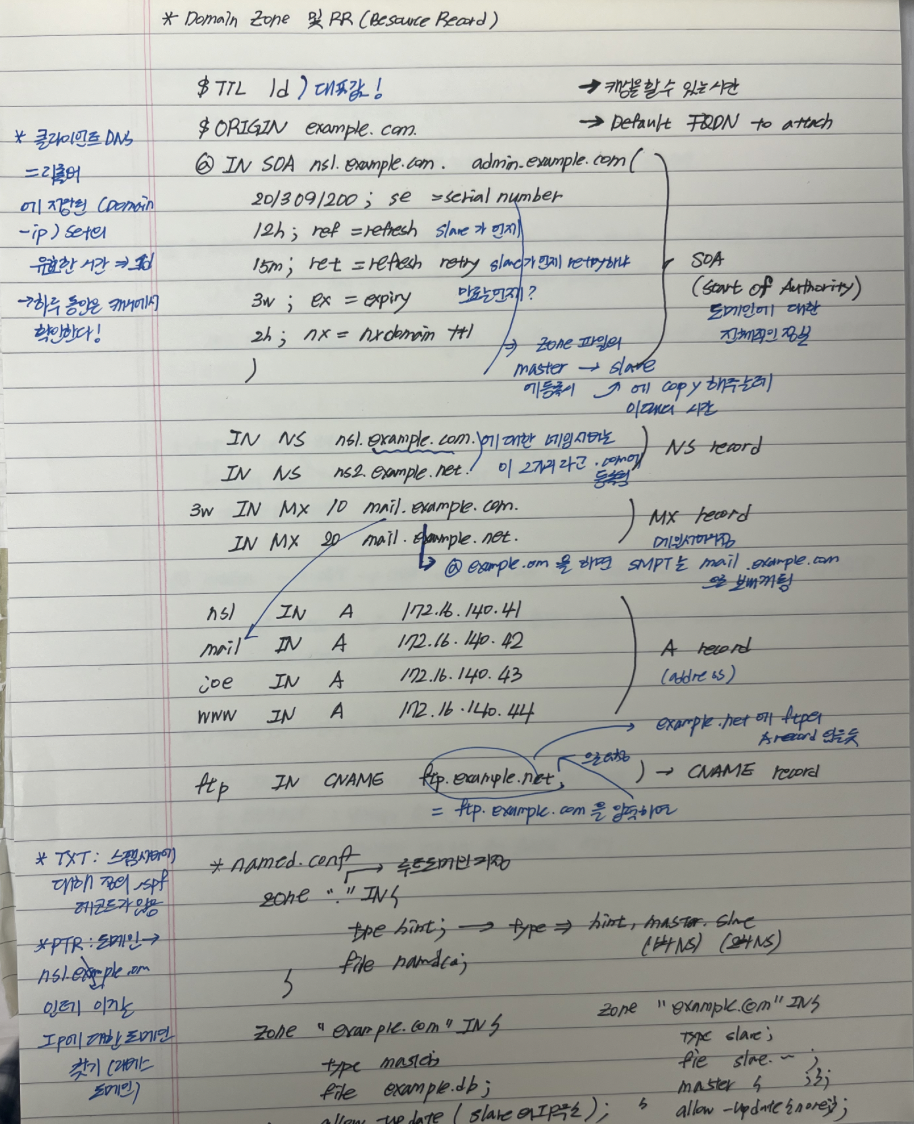 * Domain Zone 및 RR (Resource Record)
$ TTL 1d ) 대표값! → 캐싱을 할 수 있는 시간
$ ORIGIN example.com. → Default FQDN to attach
* 클라이언트 DNS
= 리졸버
에 저장된 (Domain
-ip) set의
유효한 시간 ⇒ 1d
→ 하루 동안은 캐시에서
확인한다!
@ IN SOA ns1.example.com. admin.example.com (
2013091200 ; se = serial number
12h ; ref = refresh slave가 언제
15m ; ret = refresh retry slave가 언제 retry하냐
3w ; ex = expiry 만료는 언제?
2h ; nx = nxdomain ttl
)
⇒ zone 파일의
master → slave
에 등록시 에 copy 해주는데
SOA
(Start of Authority)
도메인에 대한
IN NS ns1.example.com. 에 대한 네임서버는
IN NS ns2.example.net. 이 2개라고 .com에
등록됨
) NS record
3w IN MX 10 mail.example.com.
IN MX 20 mail.example.net.
) MX record
↳ @ example.om 을 하면 SMPT는 mail.example.com
으로
ns1 IN A 172.16.140.41
mail IN A 172.16.140.42
joe IN A 172.16.140.43
www IN A 172.16.140.44
A record
(address)
example.net 에 ftp의
A record 있을듯
ftp IN CNAME ftp.example.net. ) → CNAME record
= ftp.example.com 을 입력하면
* TXT : 스팸서버에
대해 정의 .spf
레코드가 있음
* PTR : 도메인 →
ns1.example.om
인데 이자는
IP에 대한 도메인
찾기 (리버스
도메인)
* named.conf
→ 루트도메인 지정
zone "." IN {
type hint; → type ⇒ hint, master. slave
(1차 NS) (2차 NS)
file named.ca;
}
zone "example.com" IN {
type master;
file example.db;
allow-update ( slave 의 IP주소 ); }
zone "example.com" IN {
type slave;
fie slave. ~ ;
master { };
allow-update {none;};